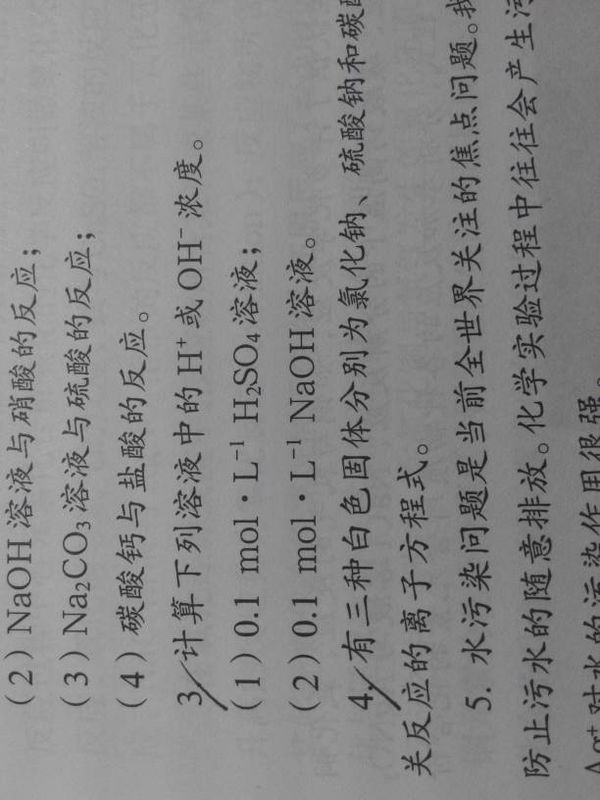 (2) NaOH 溶液与硝酸的反应;
(3) Na₂CO₃ 溶液与硫酸的反应;
(4) 碳酸钙与盐酸的反应。
3 计算下列溶液中的 H⁺ 或 OH⁻ 浓度。
(1) 0.1 mol·L⁻¹ H₂SO₄ 溶液;
(2) 0.1 mol·L⁻¹ NaOH 溶液。
4 有三种白色固体分别为氯化钠、硫酸钠和碳酸
关反应的离子方程式。
5. 水污染问题是当前全世界关注的焦点问题。我
防止污水的随意排放。化学实验过程中往往会产生污
Ag⁺ 对水的污染作用很强。